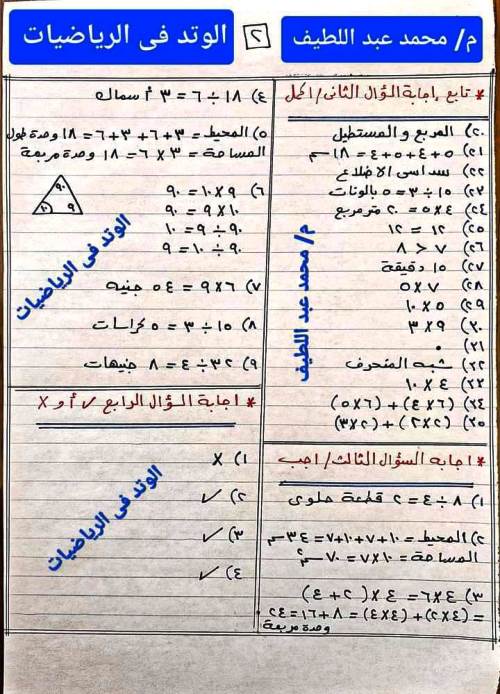 م/ محمد عبد اللطيف
٢
الوتد فى الرياضيات
* تابع إجابة السؤال الثانى / اكمل
٢٠) المربع والمستطيل
٢١) ٥+٤+٥+٤ = ١٨ سم
٢٢) سداسى الاضلاع
٢٣) ١٥ ÷ ٣ = ٥ بالونات
٢٤) ٤ × ٥ = ٢٠ متر مربع
٢٥) ١٢ = ١٢
٢٦) ٧ < ٨
٢٧) ١٥ دقيقة
٢٨) ٧ × ٥
٢٩) ٥ × ١٠
٣٠) ٩ × ٣
٣١) ٠
٣٢) شبه المنحرف
٣٣) ٤ × ١٠
٣٤) (٤×٦) + (٥×٦)
٣٥) (٢×٢) + (٣×٢)
م/ محمد عبد اللطيف
* اجابة السؤال الثالث / اجب
١) ٨ ÷ ٤ = ٢ قطعة حلوى
٢) المحيط = ١٠+٧+١٠+٧ = ٣٤ سم
المساحة = ١٠ × ٧ = ٧٠ سم٢
٣) ٤×٦ = ٤ × (٢ + ٤)
= (٤×٢) + (٤×٤) = ٨ + ١٦ = ٢٤
وحدة مربعة
٤) ١٨ ÷ ٦ = ٣ أسماك
٥) المحيط = ٣+٦+٣+٦ = ١٨ وحدة طول
المساحة = ٣ × ٦ = ١٨ وحدة مربعة
٦) ٩ × ١٠ = ٩٠
١٠ × ٩ = ٩٠
٩٠ ÷ ٩ = ١٠
٩٠ ÷ ١٠ = ٩
٩٠
١٠ ٩
٧) ٦ × ٩ = ٥٤ جنيه
٨) ١٥ ÷ ٣ = ٥ كراسات
٩) ٣٢ ÷ ٤ = ٨ جنيهات
الوتد فى الرياضيات
* اجابة السؤال الرابع ✓ أو X
١) X
٢) ✓
٣) ✓
٤) ✓
الوتد فى الرياضيات